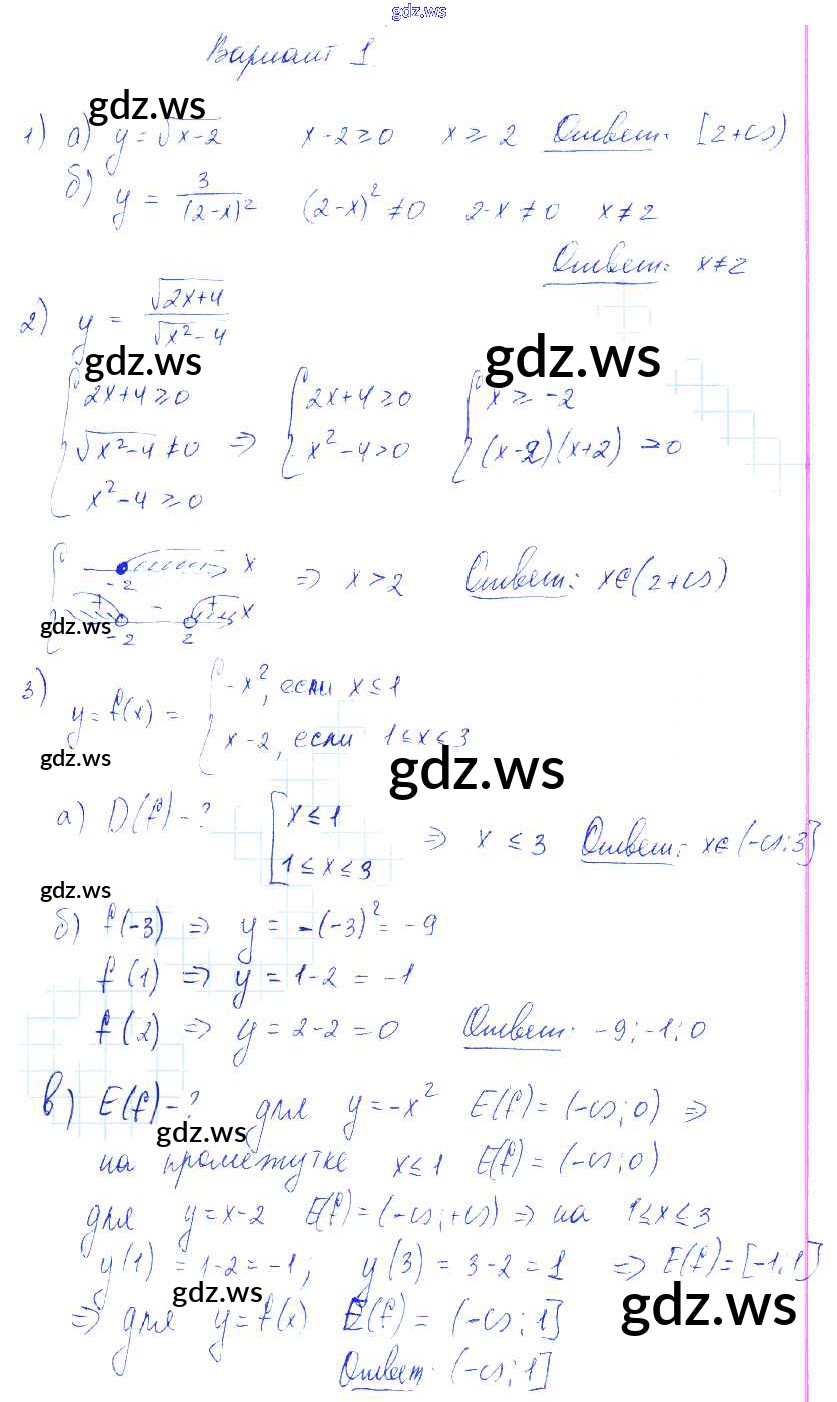 gdz.ws
Вариант 1
gdz.ws
1) а) y = √x-2   x-2≥0   x ≥ 2   Ответ: [2+∞)
б) y = 3/(2-x)²   (2-x)² ≠ 0   2-x ≠ 0   x ≠ 2
Ответ: x≠2
2) y = √2x+4 / √x²-4
gdz.ws
gdz.ws
{ 2x+4 ≥ 0   { 2x+4 ≥ 0   { x ≥ -2
√x²-4 ≠ 0 ⇒ x²-4>0   (x-2)(x+2) >0
x²-4 ≥ 0
{ -2 x ⇒ x > 2   Ответ: x∈(2+∞)
+ - + x
gdz.ws
-2 2
3) y = f(x) = { -x², если x ≤ 1
x-2, если 1≤x≤3
gdz.ws
gdz.ws
а) D(f)-? [ x ≤ 1
1 ≤ x ≤ 3 ⇒ x ≤ 3   Ответ: x∈(-∞;3]
gdz.ws
б) f(-3) ⇒ y = -(-3)² = -9
f(1) ⇒ y = 1-2 = -1
f(2) ⇒ y = 2-2 = 0   Ответ: -9; -1; 0
в) E(f)-? для y = -x²   E(f) = (-∞; 0) ⇒
gdz.ws
на промежутке x≤1   E(f) = (-∞; 0)
для y = x-2   E(f) = (-∞; +∞) ⇒ на 1≤x≤3
y(1) = 1-2 = -1; y(3) = 3-2 = 1 ⇒ E(f) = [-1;1]
gdz.ws
gdz.ws
⇒ для y = f(x)   E(f) = (-∞; 1]
Ответ: (-∞; 1]